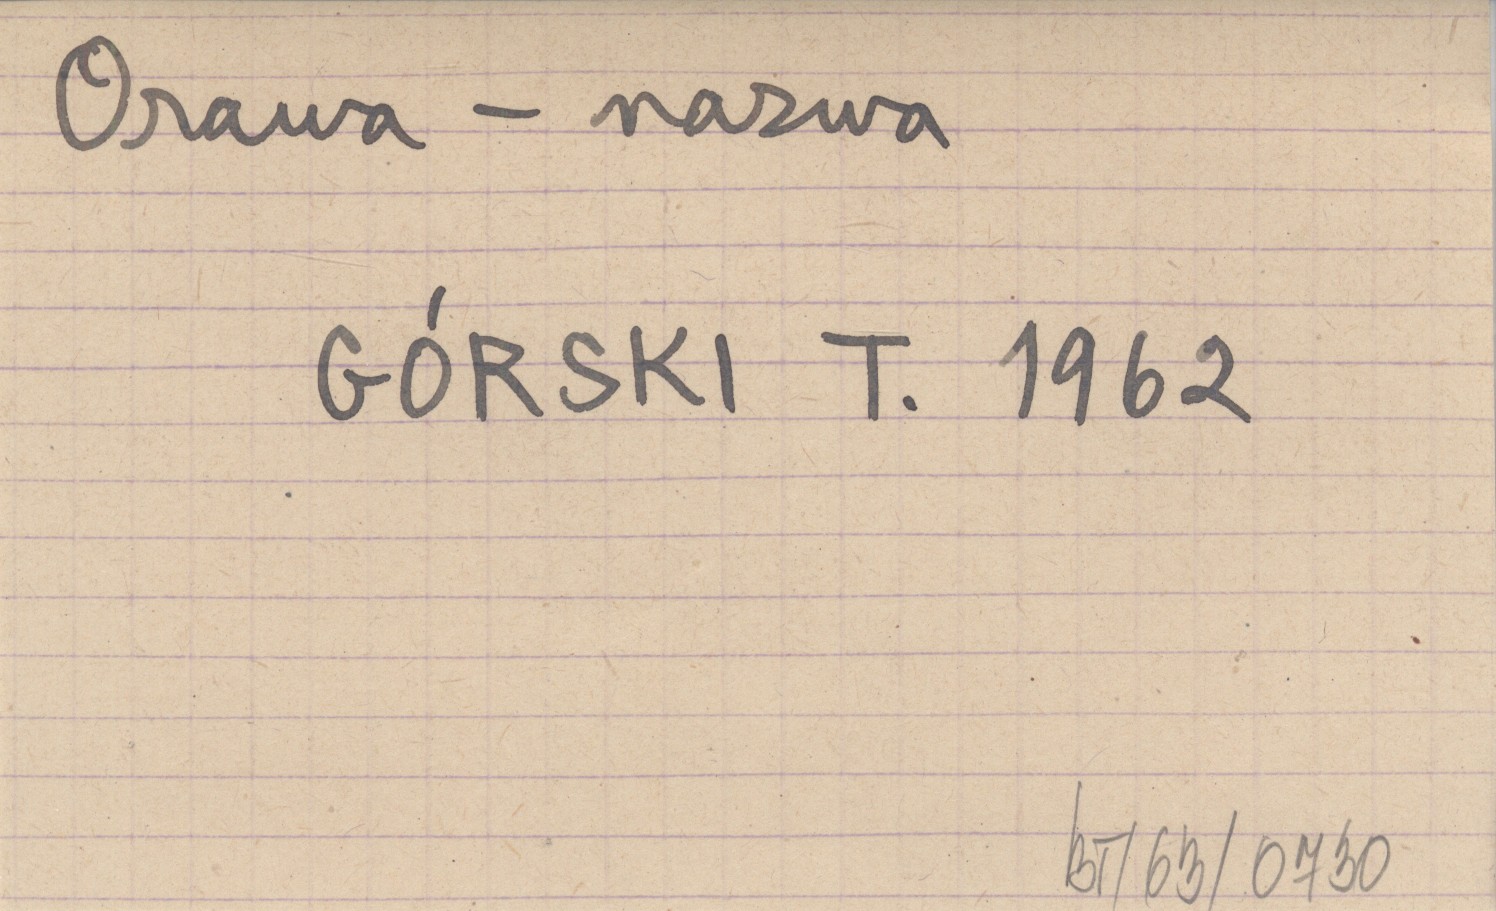 Orawa - nazwa
GÓRSKI T. 1962
BT/63/0730